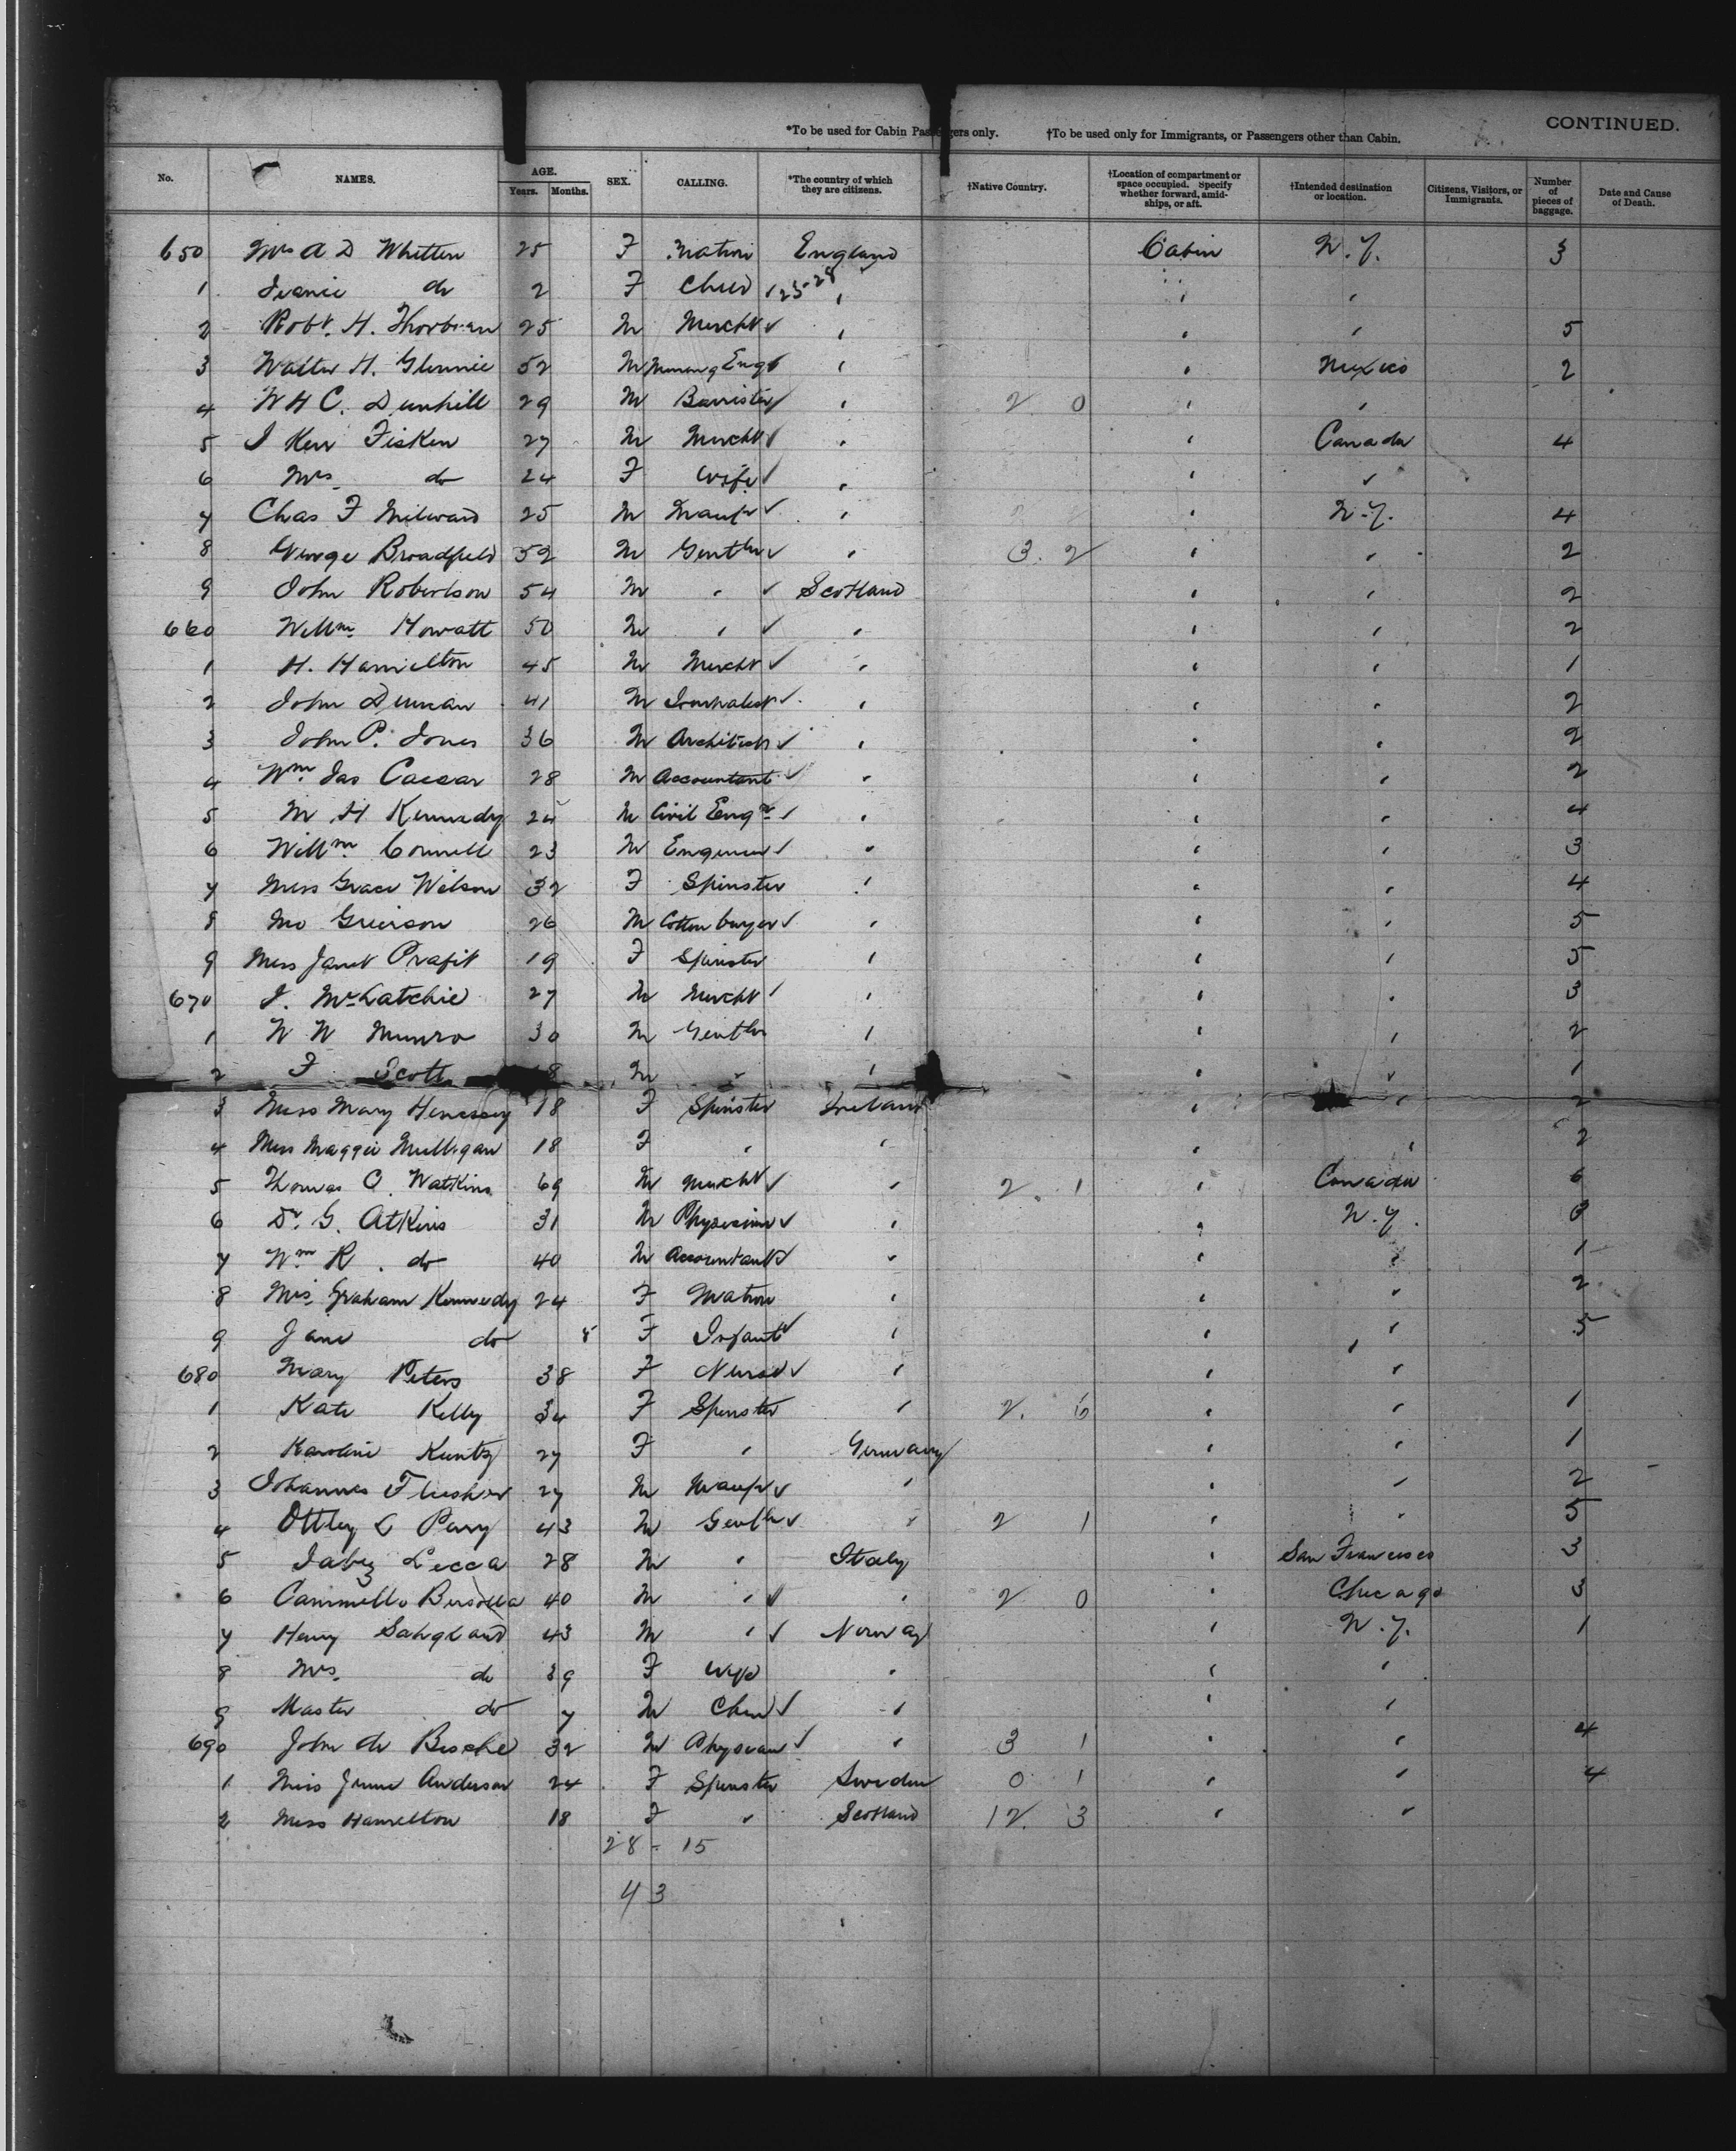 CONTINUED.
*To be used for Cabin Passengers only. †To be used only for Immigrants, or Passengers other than Cabin.
No. NAMES. AGE. Years. Months. SEX. CALLING. *The country of which they are citizens. †Native Country. †Location of compartment or space occupied. Specify whether forward, amidships, or aft. †Intended destination or location. Citizens, Visitors, or Immigrants. Number of pieces of baggage. Date and Cause of Death.
650 Mrs A D Whitten 25 F Matron England Cabin N.Y. 3
1 Jeanie do 2 F Child " " "
2 Robt. H. 25 M Mercht ✓ " " " 5
3 Walter H. Glennie 52 M Mining Engr " " Mexico 2
4 W H C. Dunhill 29 M Barrister ✓ " 2 0 " "
5 J Kerr Fisken 27 M Mercht ✓ " " Canada 4
6 Mrs. do 24 F Wife ✓ " " "
7 Chas F Milward 25 M Manfr ✓ " " N.Y. 4
8 George Broadfield 52 M Gentln ✓ " 3. 2 " " 2
9 John Robertson 54 M " ✓ Scotland " " 2
660 Willm. Howatt 50 M " ✓ " " " 2
1 H. Hamilton 45 M Mercht ✓ " " " 1
2 John Duncan 41 M Journalist ✓ " " " 2
3 John P. Jones 36 M Architect ✓ " " " 2
4 Wm. Jas Caesar 28 M Accountant ✓ " " " 2
5 M H Kennedy 24 M Civil Engr ✓ " " " 4
6 Willm. Connell 23 M Engineer ✓ " " " 3
7 Miss Grace Wilson 32 F Spinster " " " 4
8 Grierson 26 M Cotton buyer ✓ " " " 5
9 Miss Janet Profit 19 F Spinster " " " 5
670 J. McLatchie 27 M Mercht ✓ " " " 3
1 W W Munro 30 M Gentln " " " 2
2 F Scott 8 M " " " " 1
3 Miss Mary Henessey 18 F Spinster Ireland " " 2
4 Miss Maggie Mulligan 18 F " " " " 2
5 Thomas C. Watkins 69 M Mercht ✓ " 2. 1 " Canada 6
6 Dr. G. Atkins 31 M Physician ✓ " " N.Y. 3
7 Wm R. do 40 M Accountant ✓ " " " 1
8 Mrs. Graham Kennedy 24 F Matron " " " 2
9 Jane do 8 F Infant ✓ " " " 5
680 Mary Peters 38 F Nurse ✓ " " "
1 Kate Kelly 34 F Spinster " 2. 6 " " 1
2 Karoline Kuntz 27 F " Germany " " 1
3 Johannes 27 M Manfr ✓ " " " 2
4 Ottley L Perry 43 M Gentln ✓ " 2 1 " " 5
5 Jabez Lecca 28 M " Italy " San Francisco 3
6 Cammello 40 M " ✓ " 2 0 " Chicago 3
7 Henry 43 M " ✓ Norway " N.Y. 1
8 Mrs. do 39 F Wife " " "
9 Master do 7 M Child ✓ " " "
690 John de 32 M Physician ✓ " 3 1 " " 4
1 Miss Anderson 24 F Spinster Sweden 0 1 " " 4
2 Miss Hamilton 18 F " Scotland 12. 3 " "
28 - 15
43